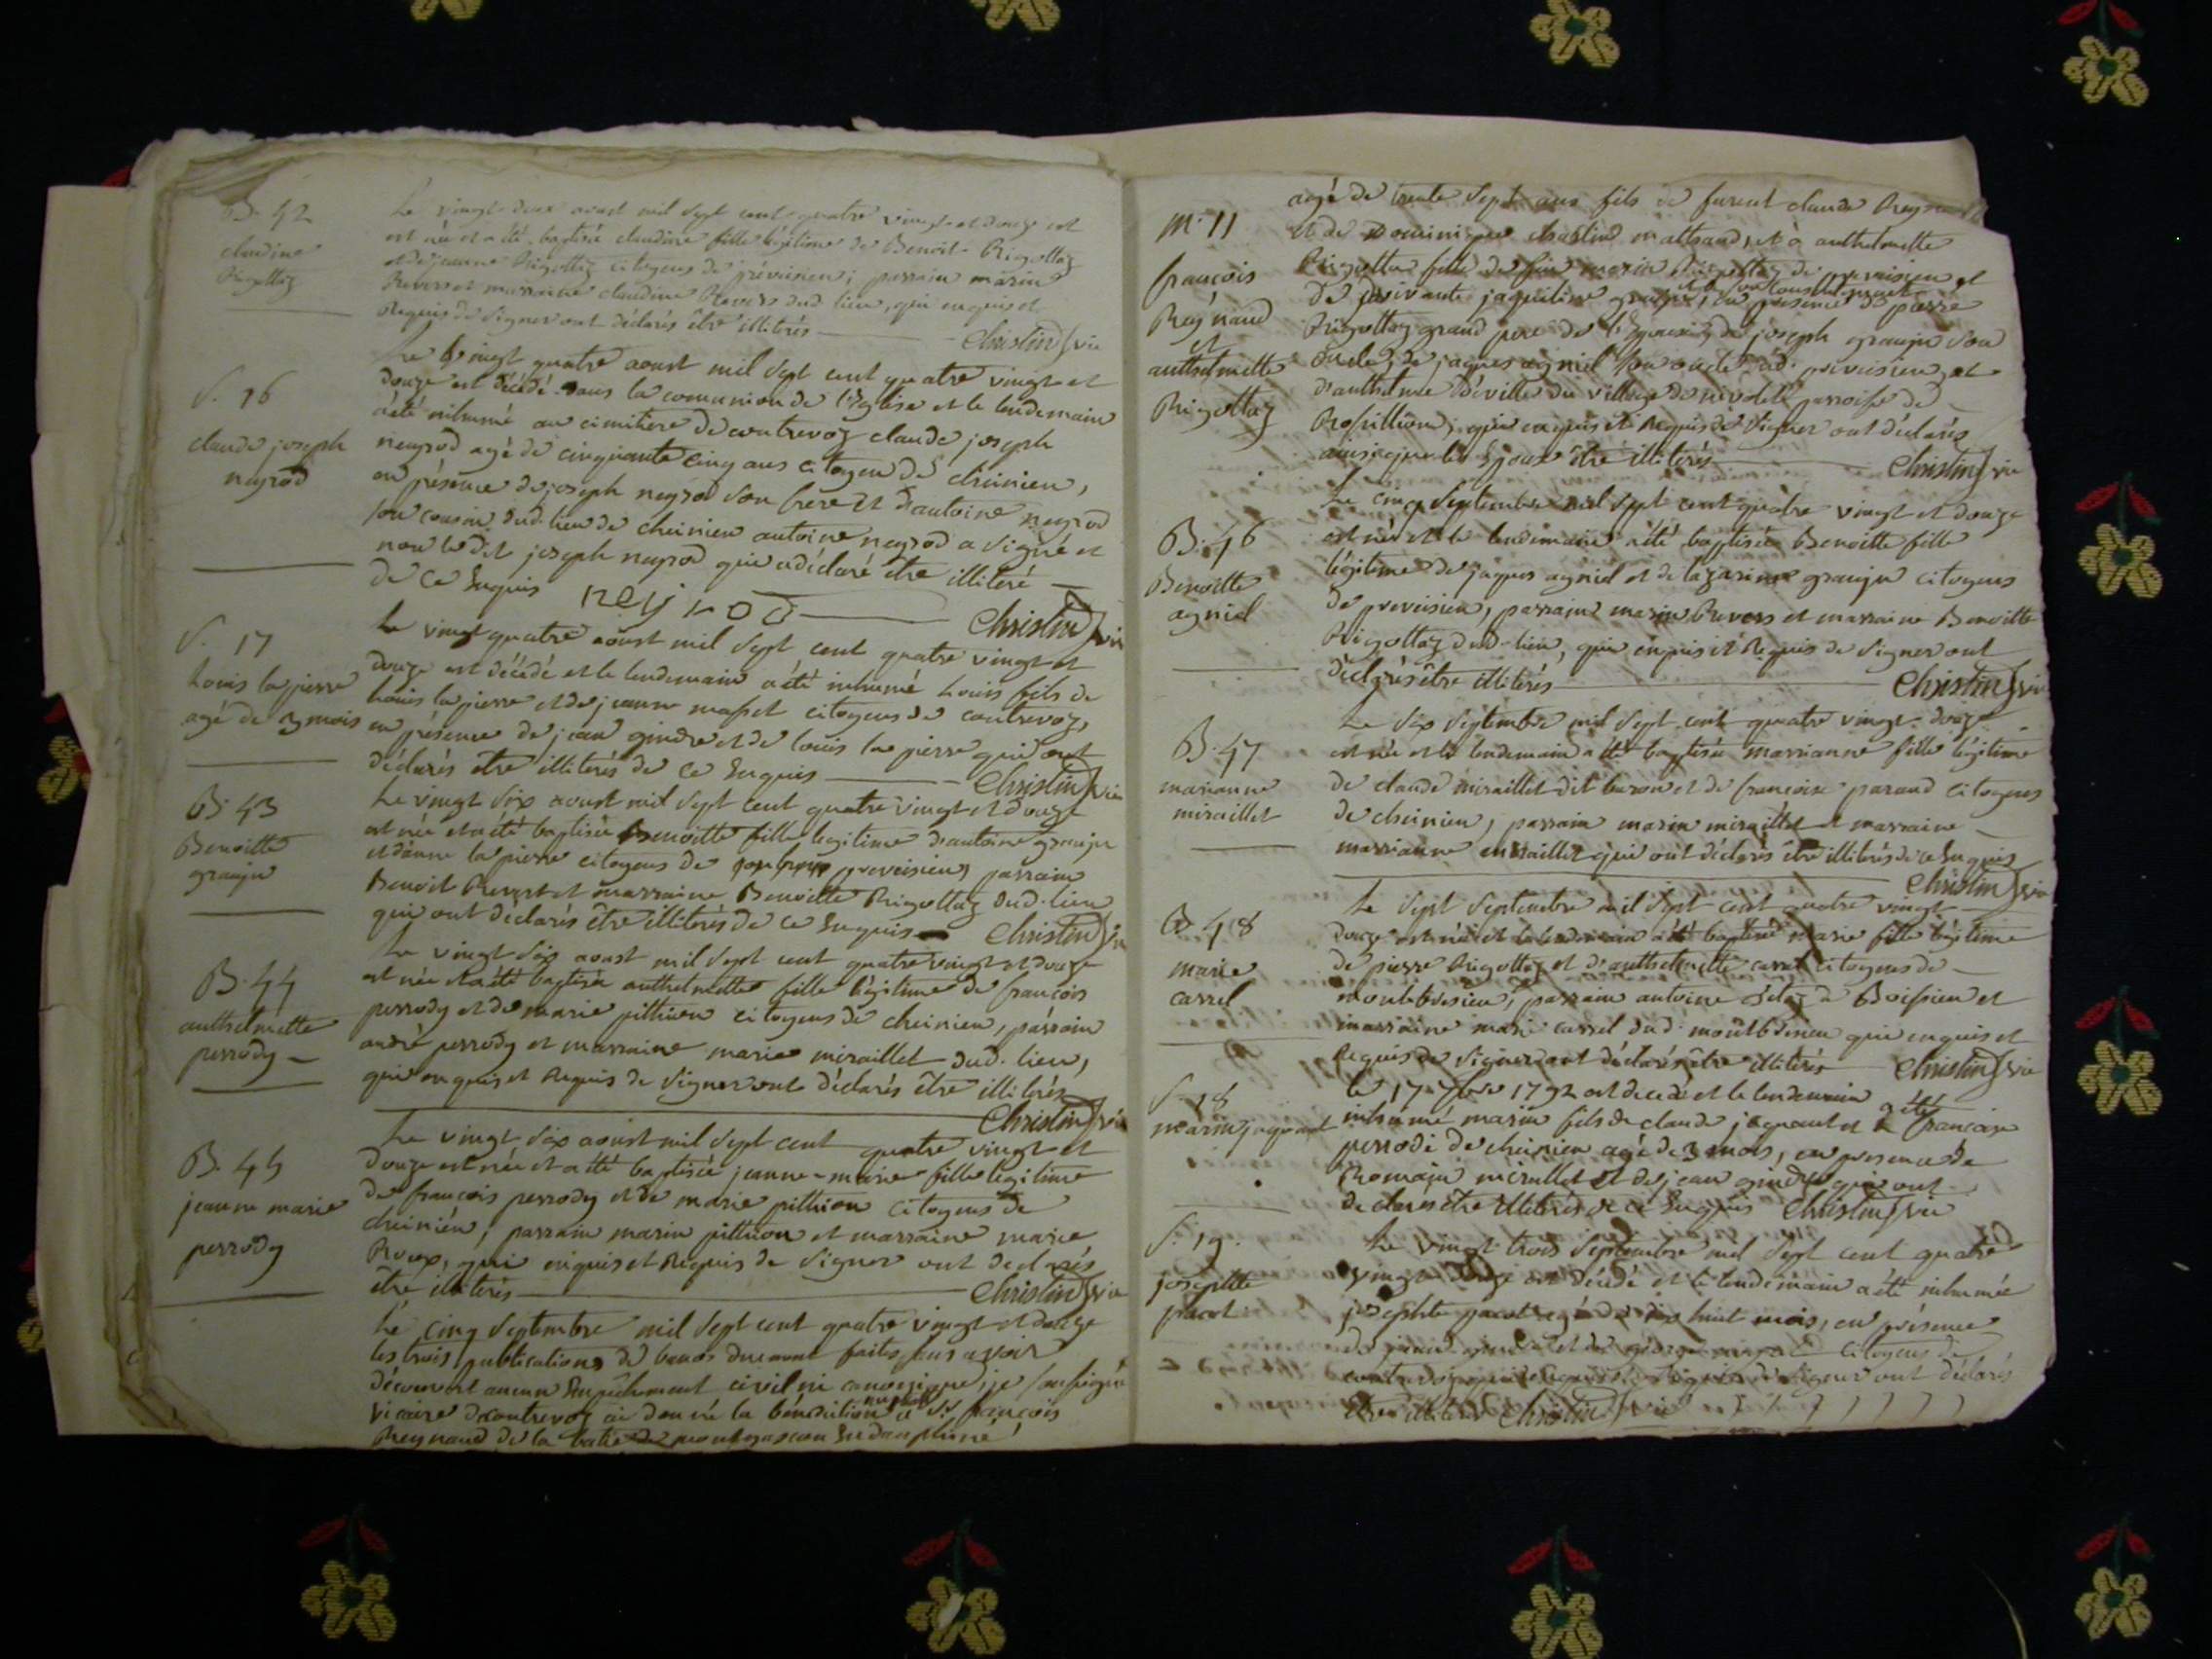 B. 42
claudine
Rigollaz
Le vingt-deux aoust mil sept cent quatre vingt et douze est
est née et a été baptisée claudine fille legitime de Benoit Rigollaz
et de jeanne Rigollaz citoyens de préveisieu; parrain marin
Revers et marraine claudine Revers dud. lieu, qui enquis et
Requis de signer ont déclarés être illiterés
Christin vic
S. 16
claude joseph
neyrod
Le vingt quatre aoust mil sept cent quatre vingt et
douze est décédé dans la comunion de l'Eglise et le lendemain
a été inhumé au cimitière de contrevoz claude joseph
neyrod agé de cinquante cinq ans citoyen de cheinieu,
en présence de joseph neyrod son frere et d'antoine neyrod
son cousin dud. lieu de cheinieu antoine neyrod a signé et
non ledit joseph neyrod qui a déclaré être illiteré
de ce Enquis neyrod
Christin vic
S. 17
Louis lapierre
agé de 3 mois
Le vingt quatre aoust mil sept cent quatre vingt et
douze est décédé et le lendemain a été inhumé Louis fils de
Louis lapierre et de jeanne masset citoyens de contrevoz,
en présence de jean gindre et de louis lapierre qui ont
déclarés être illiterés de ce Enquis
Christin vic
B. 43
Benoitte
granju
Le vingt six aoust mil sept cent quatre vingt et douze
est née et a été baptisée Benoitte fille legitime d'antoine granju
et d'anne lapierre citoyens de preveisieu, parrain
Benoit Revers et marraine Benoitte Rigollaz dud. lieu
qui ont declarés être illiterés de ce Enquis
Christin vic
B. 44
anthelmette
perrody
Le vingt six aoust mil sept cent quatre vingt et douze
est née et a été baptisée anthelmette fille légitime de françois
perrody et de marie pithion citoyens de cheinieu, parrain
andré perrody et marraine marie miraillet dud. lieu,
qui enquis et Requis de signer ont déclarés être illiterés
Christin vic
B. 45
jeanne marie
perrody
Le vingt six aoust mil sept cent quatre vingt et
douze est née et a été baptisée jeanne-marie fille legitime
de françois perrody et de marie pithion citoyens de
cheinieu, parrain marin pithion et marraine marie
Roux, qui enquis et Requis de signer ont declarés
être illiterés
Christin vic
Le cinq septembre mil sept cent quatre vingt et douze
les trois publications de bancs duement faites sans avoir
découvert aucun Empêchement civil ni canonique, je soussigné
vicaire de contrevoz ai donné la bénédiction nuptiale à Sr françois
Reynaud de la batie de montgascon En dauphiné
M. 11
françois
Reynaud
et
anthelmette
Rigollaz
agé de trente sept ans fils de furent claude Reynaud
et de Dominique mathaud, et à anthelmette
Rigollaz fille de feu marin Rigollaz de preveisieu et
de survivante jaqueline granju, en presence de pierre
Rigollaz grand pere de l'Epouse, de joseph granju son
oncle, de jaques agniel son oncle dud. preveisieu, et
d'anthelme déville du village de parroisse de
Rossillion, qui enquis et Requis de signer ont déclarés
ainsi que les Epoux être illiterés
Christin vic
B. 46
Benoitte
agniel
Le cinq septembre mil sept cent quatre vingt et douze
est née et le lendemain a été baptisée Benoitte fille
légitime de jaques agniel et de lazarine granju citoyens
de preveisieu, parrain marin Revers et marraine Benoitte
Rigollaz dud. lieu, qui enquis et Requis de signer ont
déclarés être illiterés
Christin vic
B. 47
marianne
miraillet
Le six septembre mil sept cent quatre vingt-douze
est née et le lendemain a été baptisée marianne fille légitime
de claude miraillet dit baron et de françoise parand citoyens
de cheinieu, parrain marin miraillet et marraine
marianne miraillet qui ont déclarés être illiterés de ce Enquis
Christin vic
B. 48
marie
carrel
Le sept septembre mil sept cent quatre vingt
douze est née et le lendemain a été baptisée marie fille légitime
de pierre Rigollaz et d'anthelmette carrel citoyens de
montbresieu, parrain antoine de Boissieu et
marraine marie carrel dud. montbresieu qui enquis et
Requis de signer ont déclarés être illiterés
Christin vic
S. 18
marin jaquant
le 17 7bre 1792 est decedé et le lendemain a été
inhumé marin fils de claude jaquant et de françoise
perrodi de cheinieu agé de 3 mois, en presence de
Romain miraillet et de jean gindre qui ont
declarés être illiterés de ce Enquis Christin vic
S. 19.
josephte
pacot
Le vingt-trois septembre mil sept cent quatre
vingt-douze est décédé et le lendemain a été inhumée
josephte pacot agée de dix huit mois, en présence
de jean gindre et de citoyens de
contrevoz qui enquis et Requis de signer ont déclarés
être illiterés Christin vic